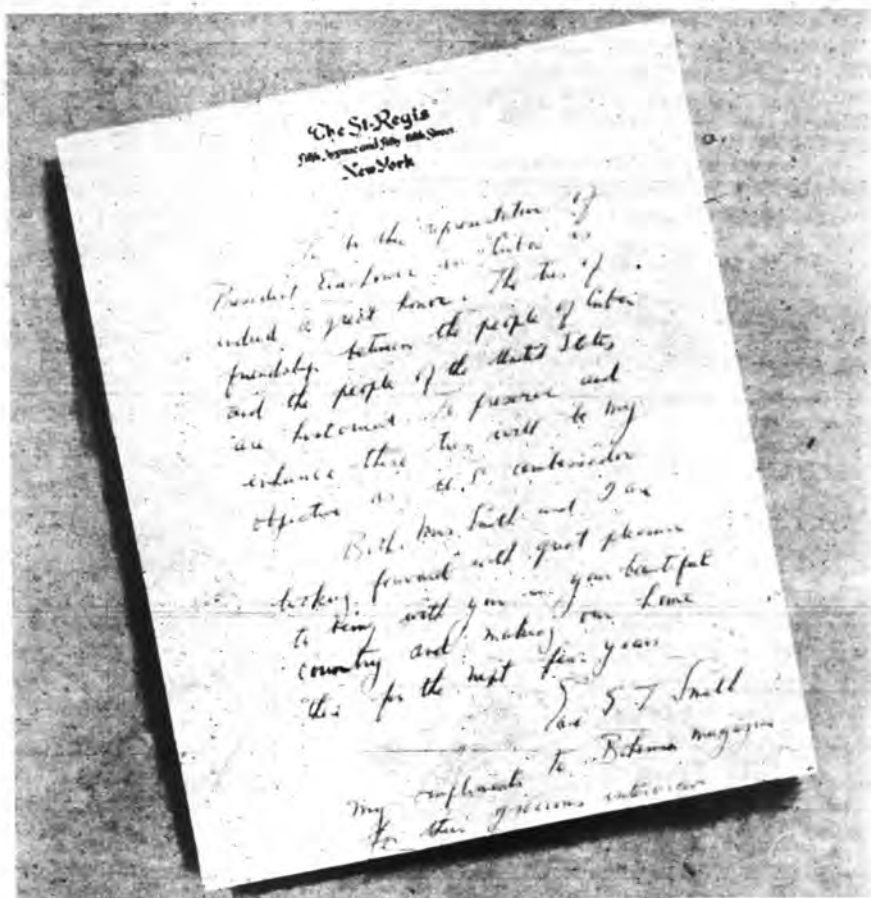 The St. Regis
Fifth Avenue and Fifty-fifth Street
New York
To be the representative of
President Eisenhower in Cuba is
indeed a great honor. The ties of
friendship between the people of Cuba
and the people of the United States
are historical. To preserve and
enhance these ties will be my
objective as U.S. ambassador
Both Mrs. Smith and I are
looking forward with great pleasure
to being with you in your beautiful
country and making our home
there for the next few years
Earl E. T. Smith
My compliments to Bohemia magazine
for their gracious interview